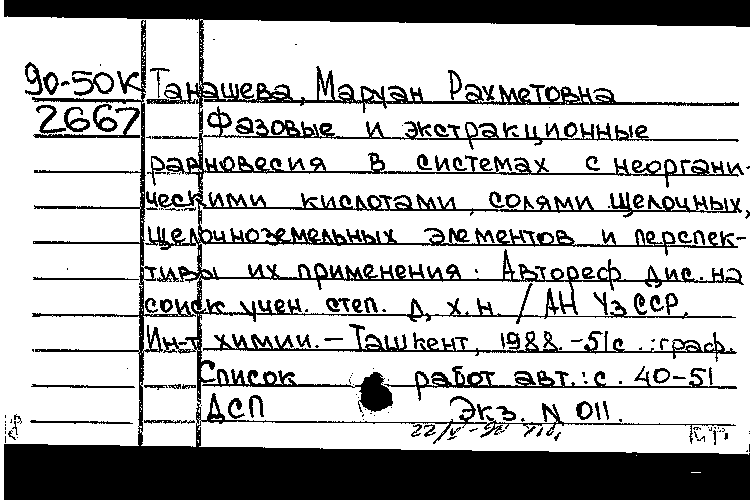 90-50К Танашева, Маруан Рахметовна
2667 Фазовые и экстракционные
равновесия в системах с неоргани-
ческими кислотами, солями щелочных,
щелочноземельных элементов и перспек-
тивы их применения: Автореф. дис. на
соиск. учен. степ. д. х. н. / АН УзССР.
Ин-т химии. - Ташкент, 1988. - 51с.: граф.
Список работ авт.: с. 40-51
ДСП Экз. N 011.